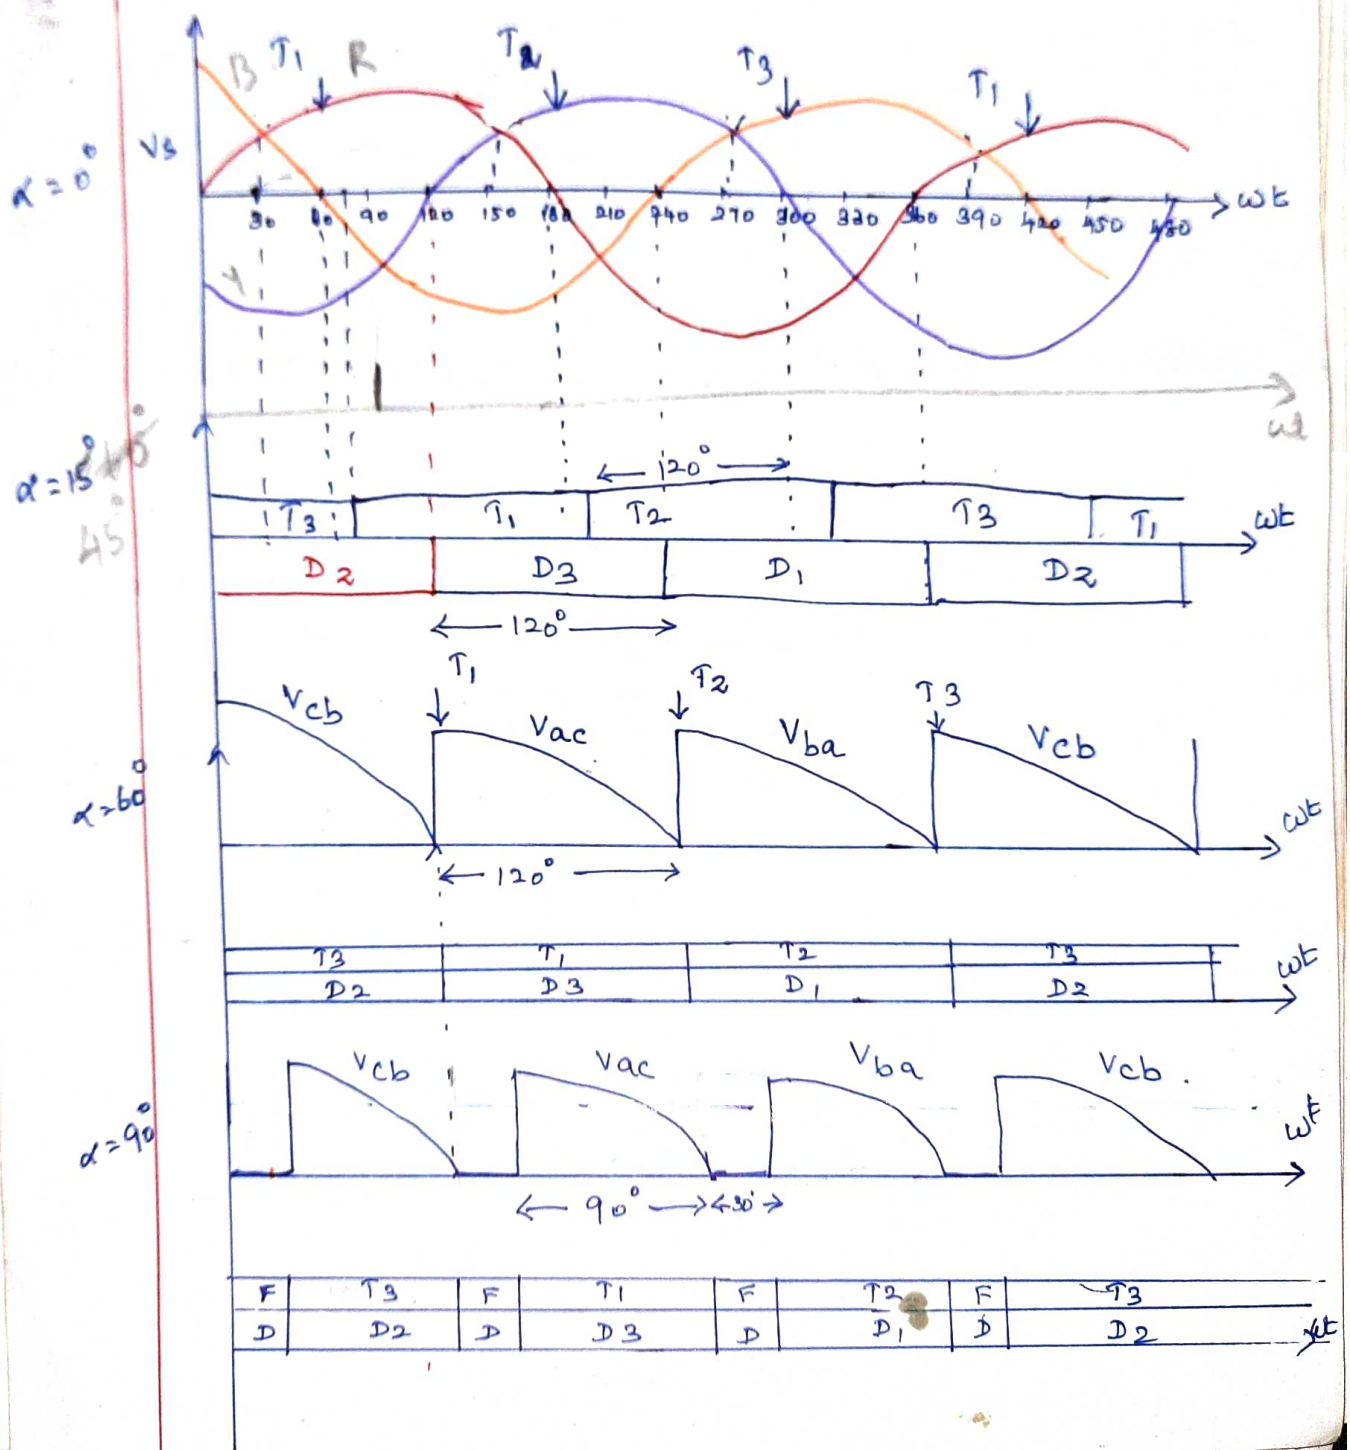 B T1 R T2 T3 T1
α = 0° Vs
30 60 90 120 150 180 210 240 270 300 330 360 390 420 450 480 ωt
Y
ωt
α = 15°
45°
← 120° →
T3 T1 T2 T3 T1 ωt
D2 D3 D1 D2
← 120° →
T1 T2 T3
Vcb Vac Vba Vcb
α = 60° ωt
← 120° →
T3 T1 T2 T3 ωt
D2 D3 D1 D2
Vcb Vac Vba Vcb
α = 90° ωt
← 90° → ← 30° →
F T3 F T1 F T2 F T3
D D2 D D3 D D1 D D2 ωt